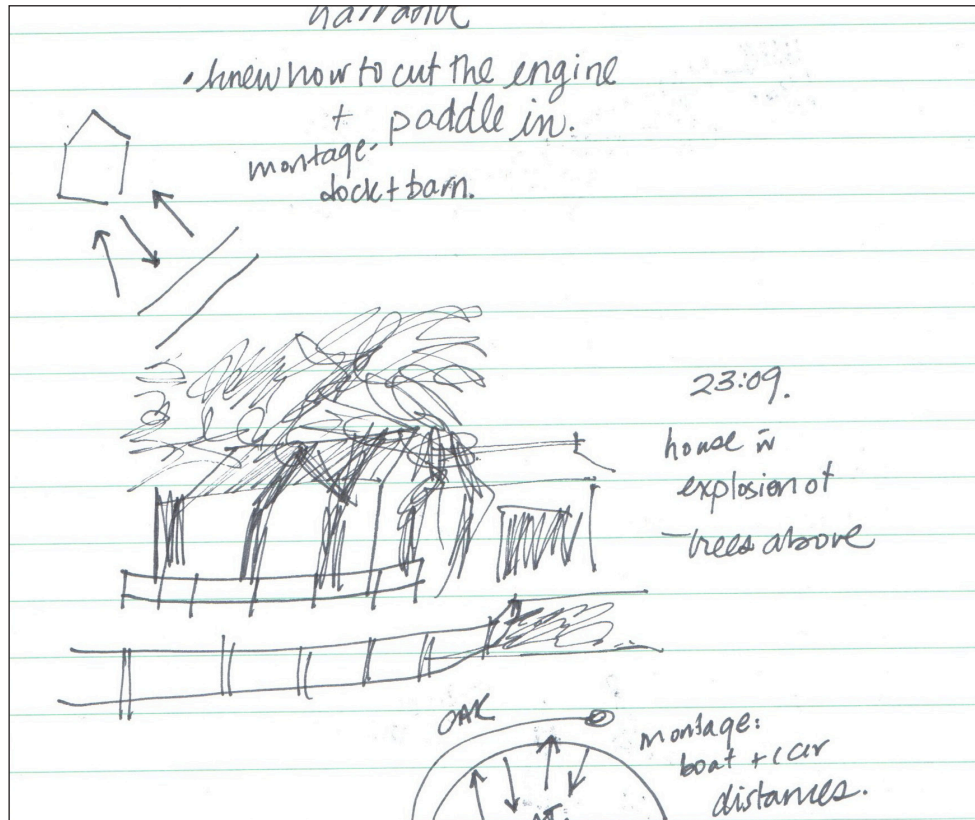 narrative
• knew how to cut the engine
+ paddle in.
montage-
dock + barn.
23:09.
house in
explosion of
trees above
OAK
montage:
boat + car
distances.